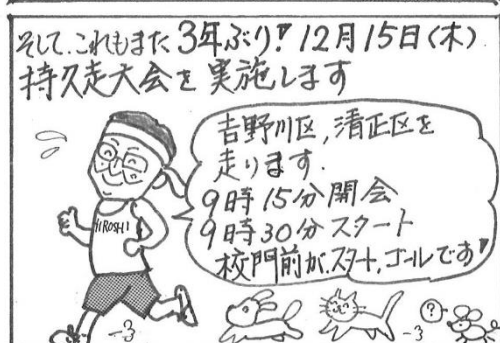 そして、これもまた3年ぶり!! 12月15日(木)
持久走大会を実施します
吉野川区,清正区を
走ります.
9時15分開会
9時30分スタート
校門前が、スタート,ゴールです!!
HIROSHI
?